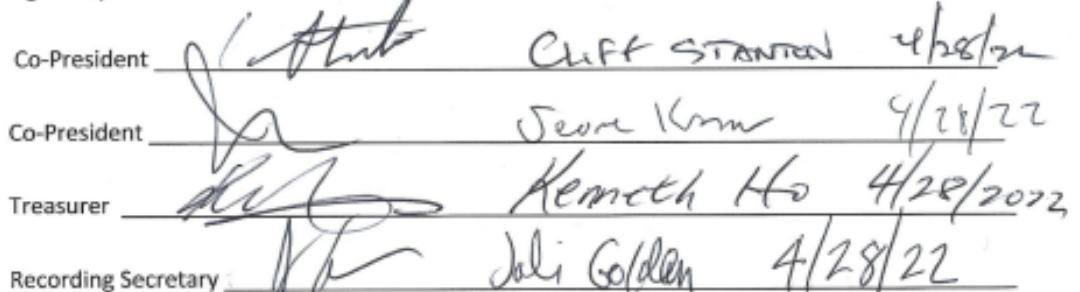 Co-President CLIFF STANTON 4/28/22
Co-President 4/28/22
Treasurer Kenneth Ho 4/28/2022
Recording Secretary Golden 4/28/22